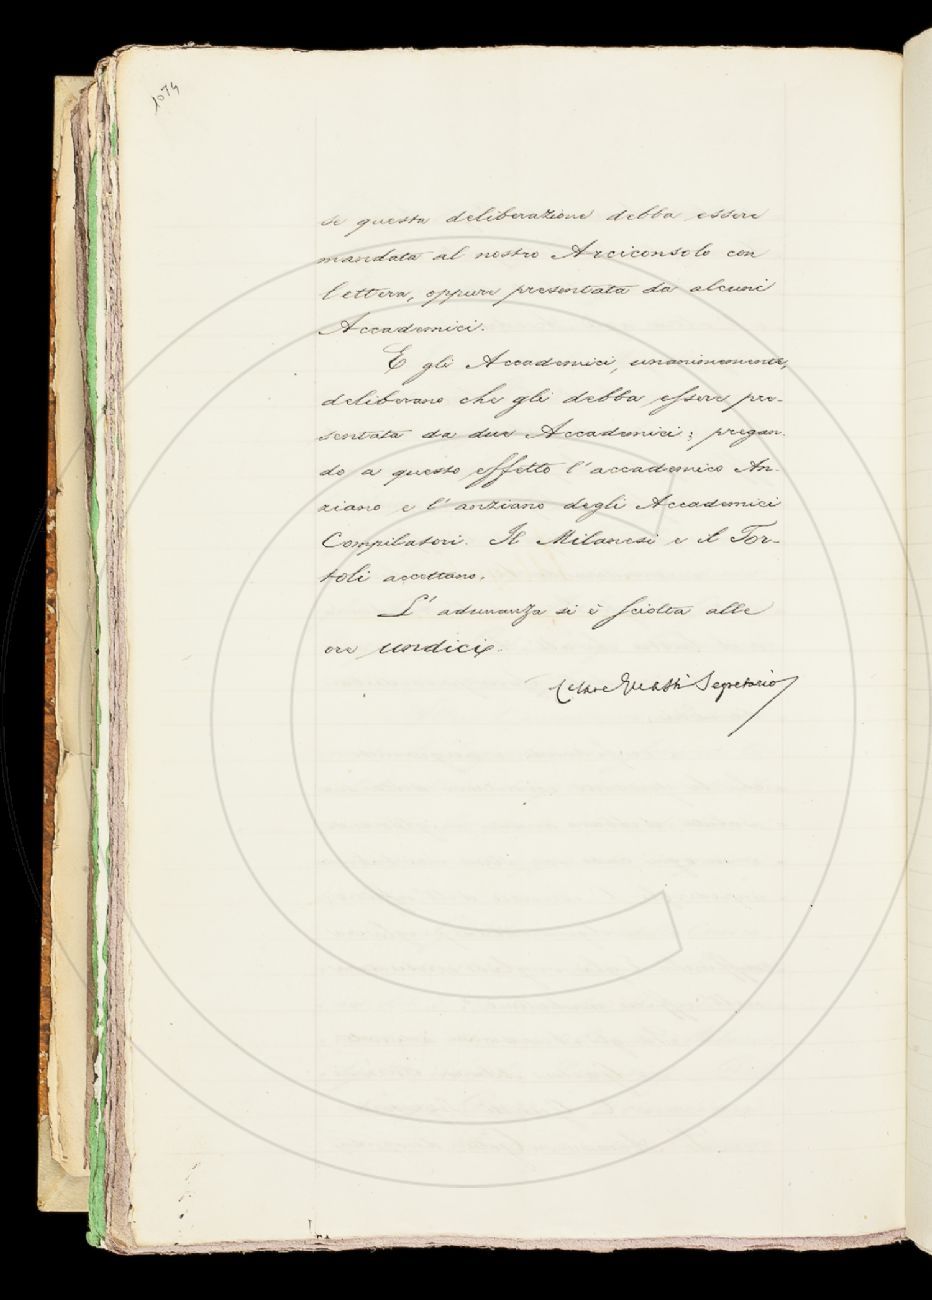 1074
se questa deliberazione debba essere
mandata al nostro Arciconsolo con
lettera, oppure presentata da alcuni
Accademici.
E gli Accademici, unanimemente,
deliberano che gli debba essere pre-
sentata da due Accademici; pregan-
do a questo effetto l'accademico An-
ziano e l'anziano degli Accademici
Compilatori. Il Milanesi e il Tor-
toli accettano.
L'adunanza si è sciolta alle
ore undici.
Cesare Guasti Segretario